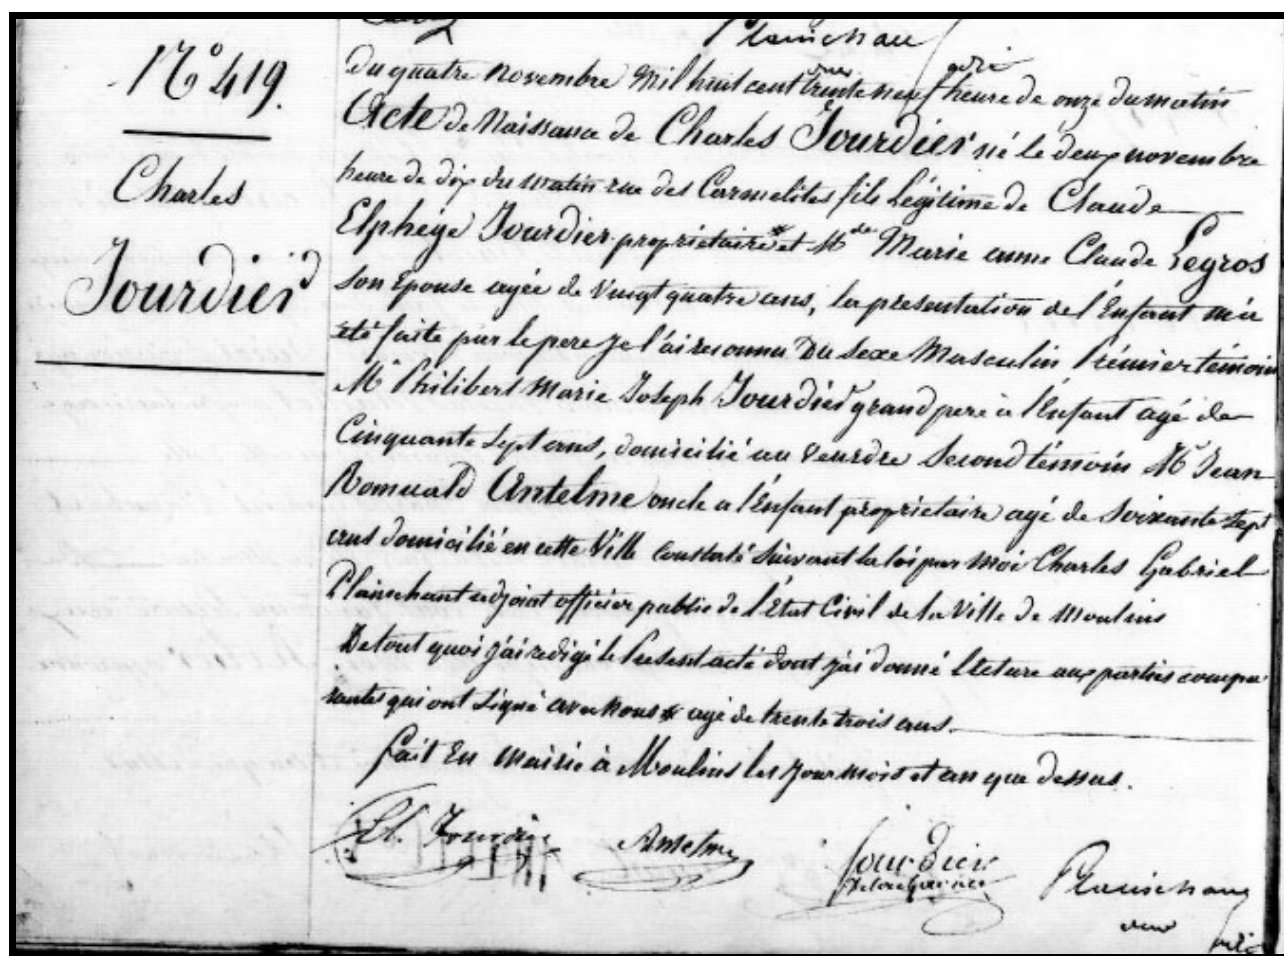 Plainchant
N° 419.
Charles
Jourdier
du quatre novembre mil huit cent trente neuf heure de onze du matin
Acte de Naissance de Charles Jourdier né le deux novembre
heure de dix du matin rue des Carmelites fils légitime de Claude
Elphège Jourdier propriétaire * et Mde Marie anne Claude Legros
son Epouse agée de vingt quatre ans, la présentation de l'Enfant m'a
été faite par le pere je l'ai reconnu du sexe Masculin Prémier témoin
Mr Philibert Marie Joseph Jourdier grand pere à l'Enfant agé de
Cinquante sept ans, domicilié au Veurdre Second témoin Mr Jean
Romuald Antelme oncle a l'Enfant propriétaire agé de Soixante sept
ans domicilié en cette Ville constaté suivant la loi par moi Charles Gabriel
Plainchant adjoint officier public de l'Etat Civil de la Ville de Moulins
De tout quoi j'ai redigé le présent acte dont j'ai donné lecture aux parties compa
rantes qui ont signé avec nous * agé de trente trois ans.
fait En Mairie à Moulins les jour mois et an que dessus.
Jourdier Antelme Jourdier Plainchant